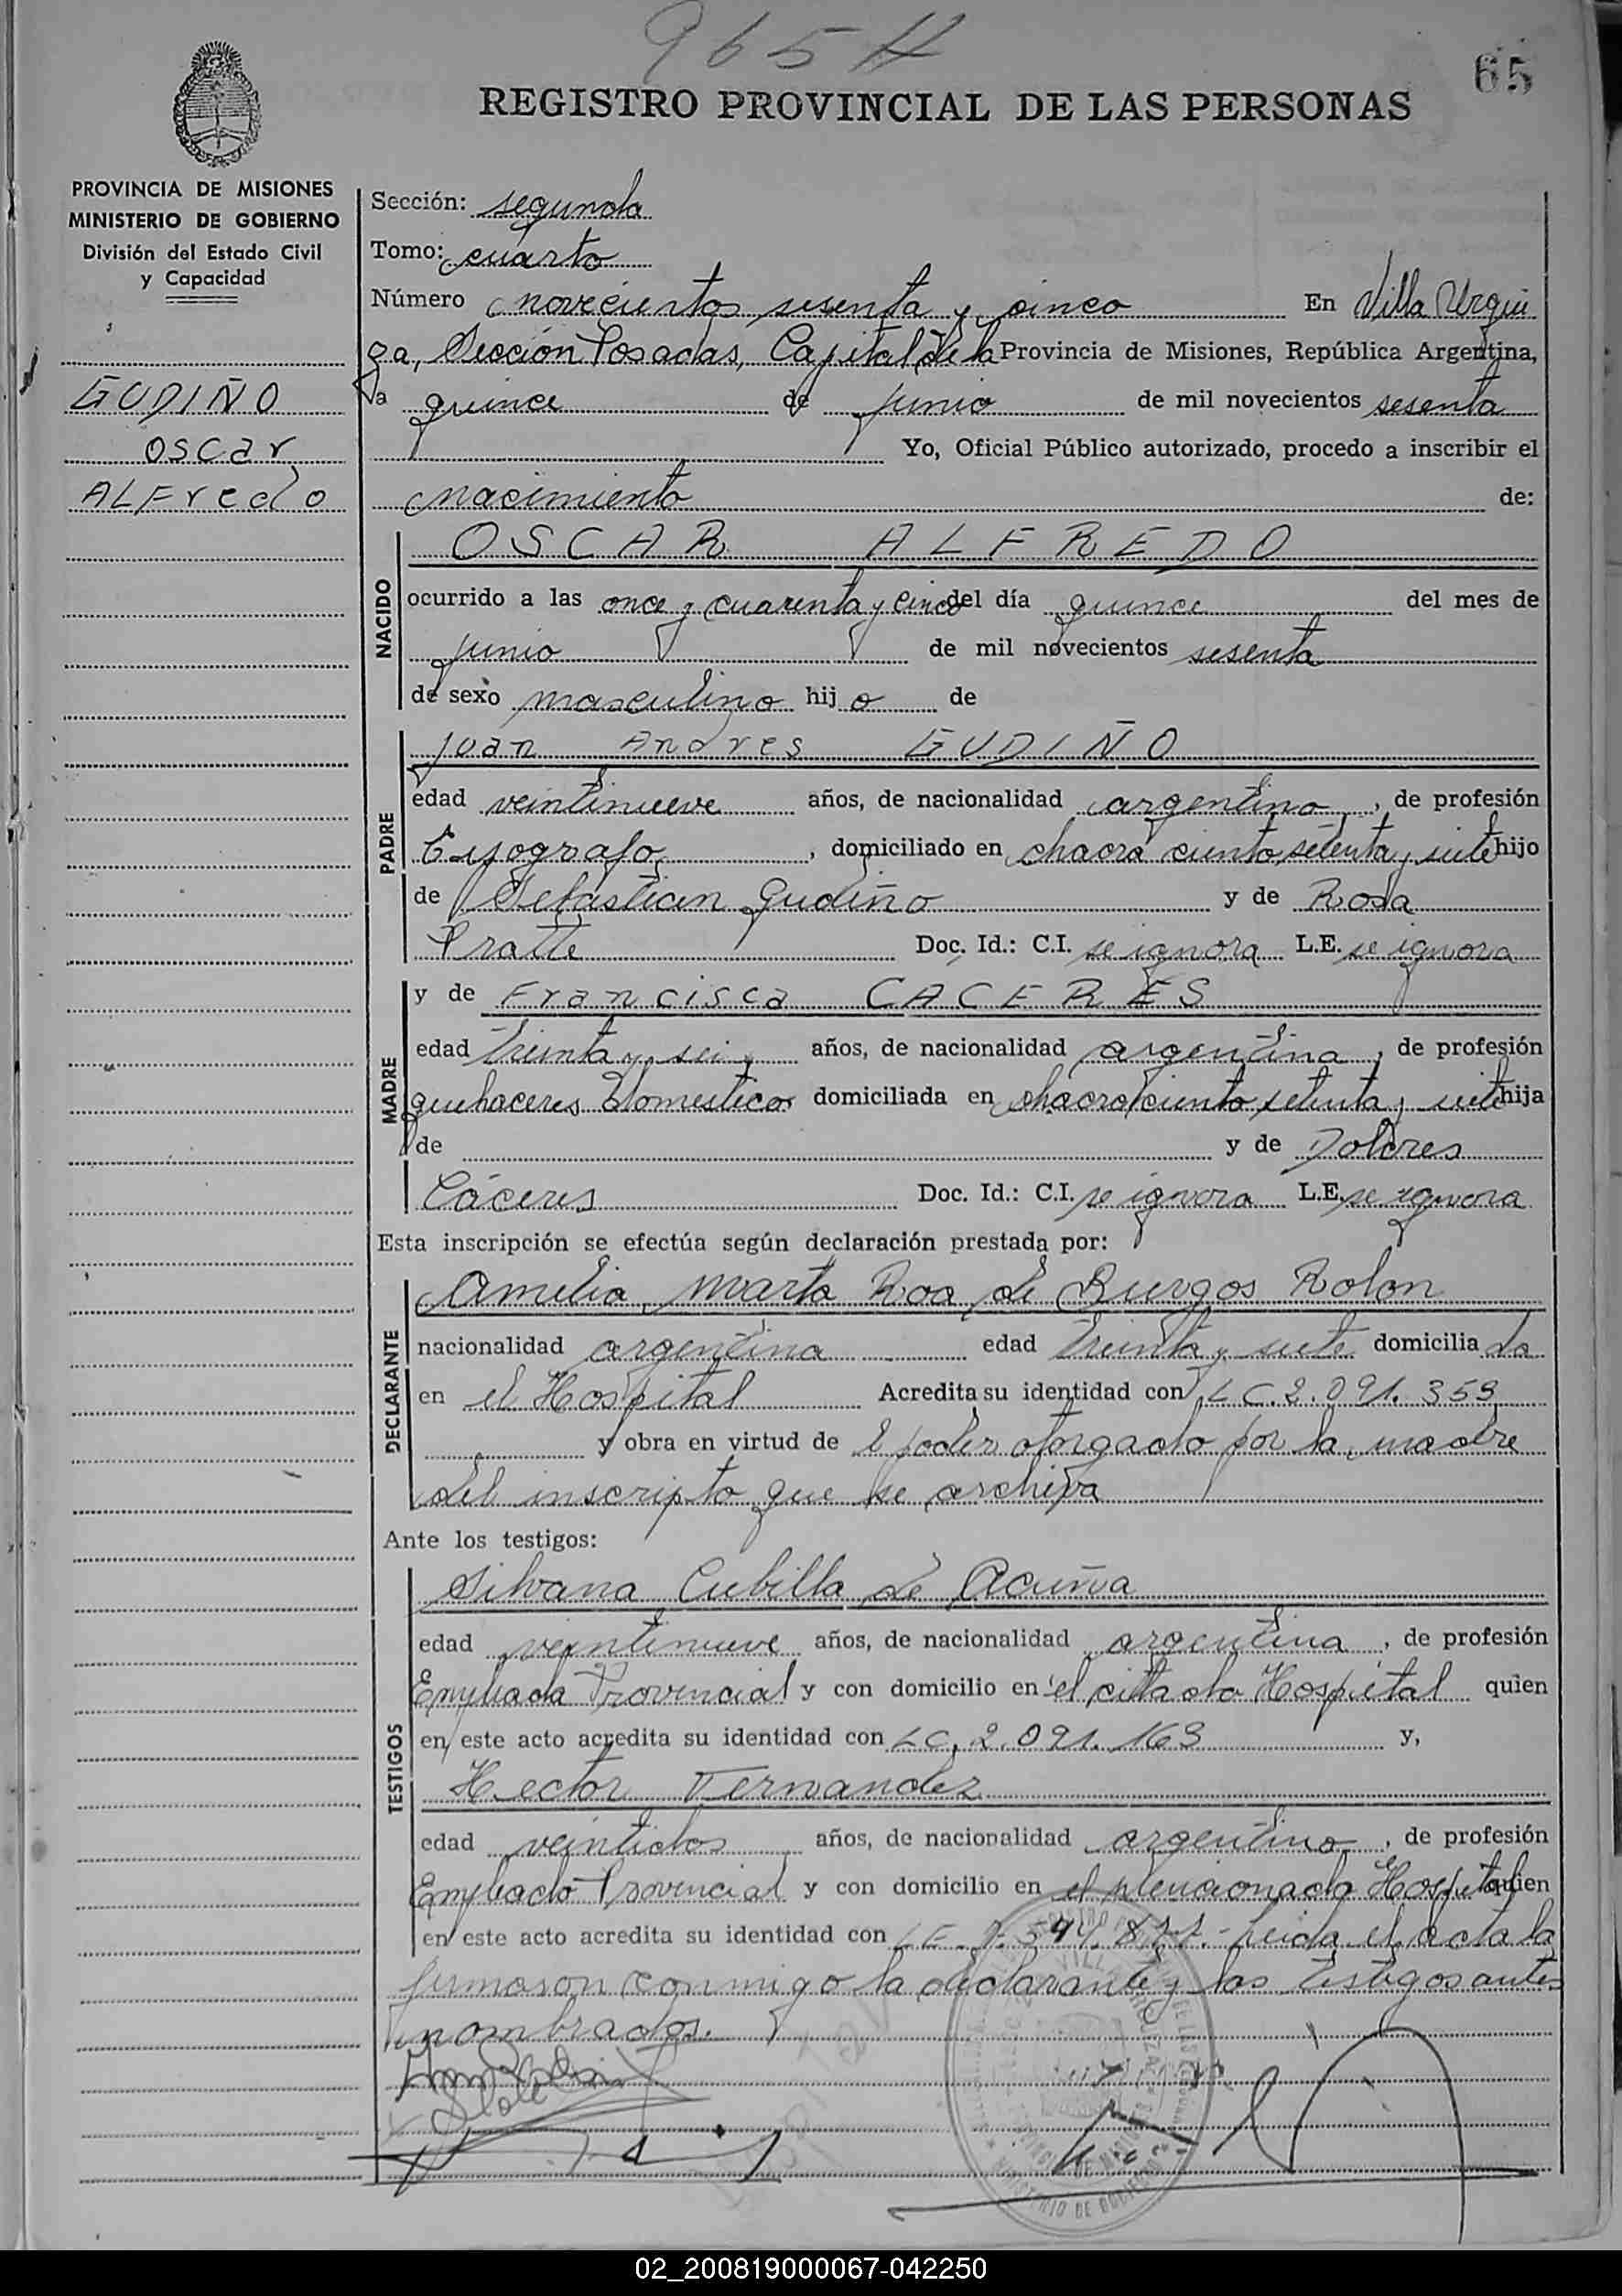 965 H
65
REGISTRO PROVINCIAL DE LAS PERSONAS
PROVINCIA DE MISIONES
MINISTERIO DE GOBIERNO
División del Estado Civil
y Capacidad
GUDIÑO
Oscar
ALFredo
Sección: segunda
Tomo: cuarto
Número novecientos sesenta y cinco En Villa Urqui
za, Sección Posadas, Capital de la Provincia de Misiones, República Argentina,
a quince de junio de mil novecientos sesenta
Yo, Oficial Público autorizado, procedo a inscribir el
nacimiento de:
NACIDO
OSCAR ALFREDO
ocurrido a las once y cuarenta y cinco del día quince del mes de
junio de mil novecientos sesenta
de sexo masculino hij o de
PADRE
Juan Andres GUDIÑO
edad veintinueve años, de nacionalidad argentino, de profesión
Tipografo, domiciliado en chacra ciento setenta y siete hijo
de Sebastian Gudiño y de Rosa
Pratte Doc. Id.: C.I. se ignora L.E. se ignora
MADRE
y de Francisca CACERES
edad treinta y seis años, de nacionalidad argentina, de profesión
quehaceres domesticos domiciliada en chacra ciento setenta y siete hija
de y de Dolores
Cáceres Doc. Id.: C.I. se ignora L.E. se ignora
Esta inscripción se efectúa según declaración prestada por:
DECLARANTE
Amelia Marta Roa de Burgos Rolon
nacionalidad argentina edad treinta y siete domicilia da
en el Hospital Acredita su identidad con LC. 2.091.359
y obra en virtud de l poder otorgado por la madre
del inscripto que se archiva
Ante los testigos:
TESTIGOS
Silvana Cubilla de Acuña
edad veintinueve años, de nacionalidad argentina, de profesión
Empleada Provincial y con domicilio en el citado Hospital quien
en este acto acredita su identidad con LC. 2.091.163 y,
Hector Fernandez
edad veintidos años, de nacionalidad argentino, de profesión
Empleado Provincial y con domicilio en el mencionado Hospital quien
en este acto acredita su identidad con LE. Leida el acta la
firmaron conmigo la declarante y los testigos antes
nombrados.
02_200819000067-042250